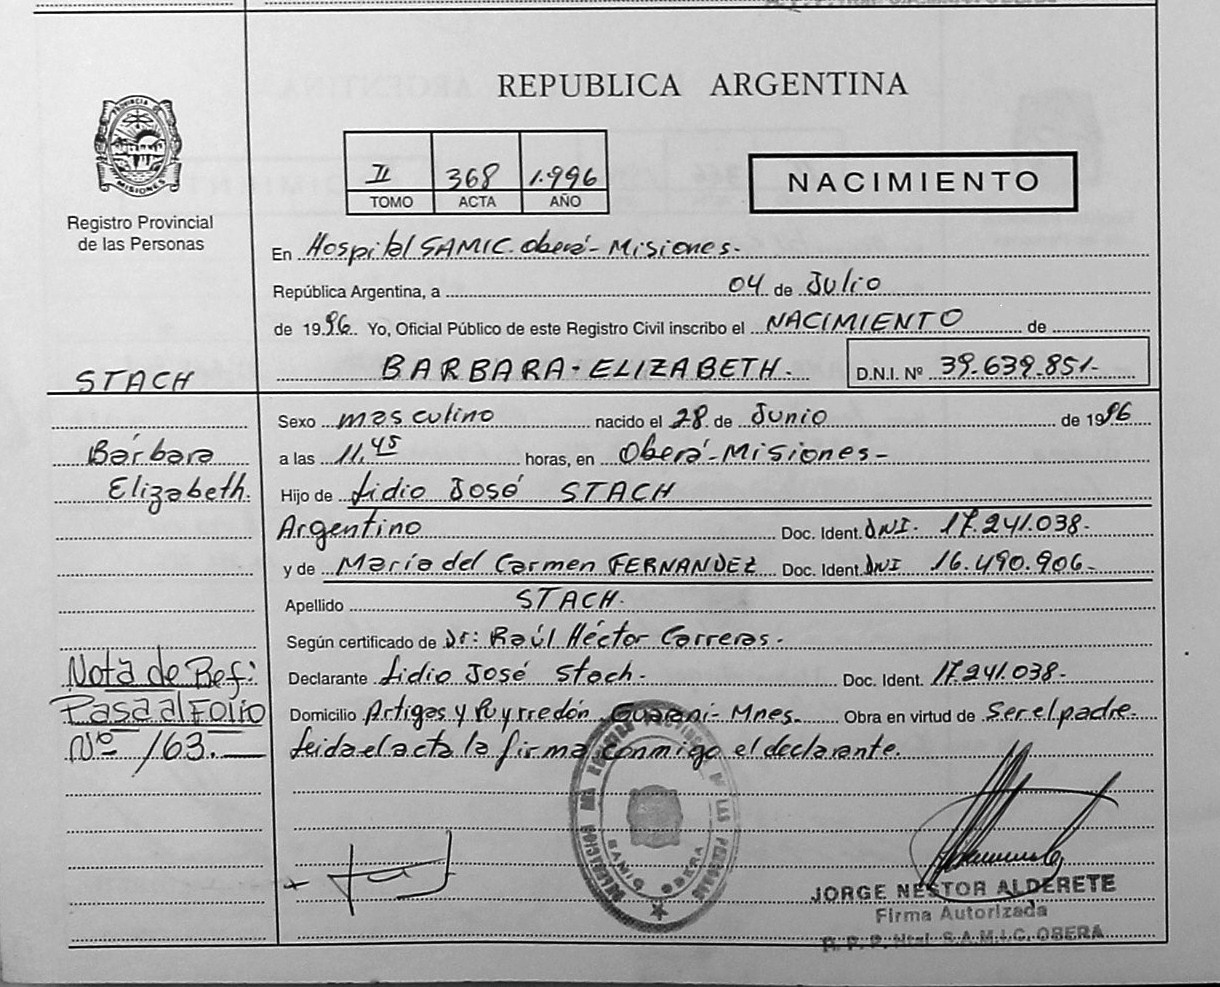 REPUBLICA ARGENTINA
PROVINCIA DE
MISIONES
Registro Provincial
de las Personas
II 368 1.996
TOMO ACTA AÑO
NACIMIENTO
En Hospital SAMIC. Oberá - Misiones.
República Argentina, a 04 de Julio
de 1996. Yo, Oficial Público de este Registro Civil inscribo el NACIMIENTO de
BARBARA - ELIZABETH D.N.I. Nº 39.639.851-
STACH
Bárbara
Elizabeth.
Nota de Ref:
Pasa al Folio
Nº 163.
Sexo masculino nacido el 28 de Junio de 1996
a las 11,45 horas, en Oberá - Misiones -
Hijo de Lidio José STACH
Argentino Doc. Ident. DNI. 17.241.038-
y de María del Carmen FERNANDEZ Doc. Ident. DNI 16.490.906-
Apellido STACH.
Según certificado de Dr: Raúl Héctor Carreras.
Declarante Lidio José Stach. Doc. Ident. 17.241.038-
Domicilio Artigas y Puyrredón Guaraní - Mnes. Obra en virtud de Ser el padre.
Leida el acta la firma conmigo el declarante.
JORGE NESTOR ALDERETE
Firma Autorizada
S.A.M.I.C. OBERA